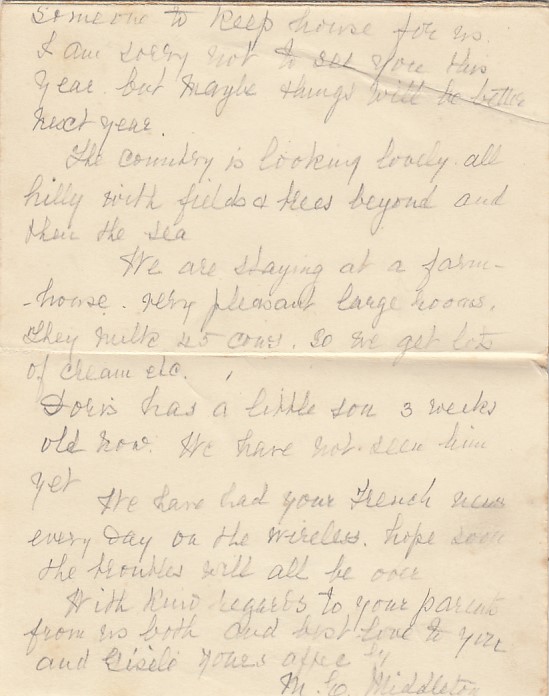 Someone to keep house for us.
I am sorry not to see you this
year. but maybe things will be better
next year.
The country is looking lovely. all
hilly with fields & trees beyond and
then the sea
We are staying at a farm-
-house. very pleasant large rooms.
They milk 45 cows. So we get lots
of cream etc.
Doris has a little son 3 weeks
old now. We have not seen him
yet
We have had your French news
every day on the wireless. hope soon
the troubles will all be over
With kind regards to your parents
from us both and best love to you
and Gisele yours affec ly
M. Middleton